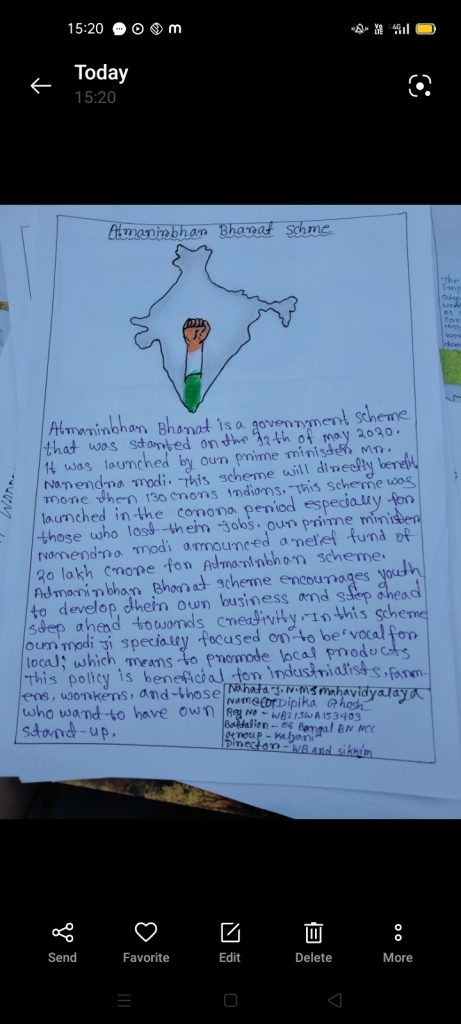 15:20
Today
15:20
Atmaninbhan Bhanat Schme
Atmaninbhan Bhanat is a government scheme
that was stanted on the 12th of may 2020.
It was launched by oun pnime ministen Mn.
Nanendna modi. This scheme will dinectly benefit
mone then 130 cnons Indians. This scheme was
launched in the conona peniod especially fon
those who lost thein jobs. oun pnime ministen
Nanendna modi announced a nelief fund of
20 lakh cnone fon Admaninbhan scheme.
Admaninbhan Bhanat scheme encounages youth
to develop dhein own business and step ahead
step ahead towands cneativity. In this scheme
oun modi ji specially focused on to be 'vocal fon
local; which means to pnomote local pnoducts
This policy is beneficial fon industnialists, Fanm-
ens, wonkens, and those
who wand to have own
stand-up.
Nahata J. N. M. S mahavidyalaya
Name - CDT Dipika Ghosh
Reg No - WB21SWA153403
Battalion - 06 Bangal BN NCC
Gnoup - Kalyani
Dinecton - WB and sikkim
The
as
Send
Favorite
Edit
Delete
More